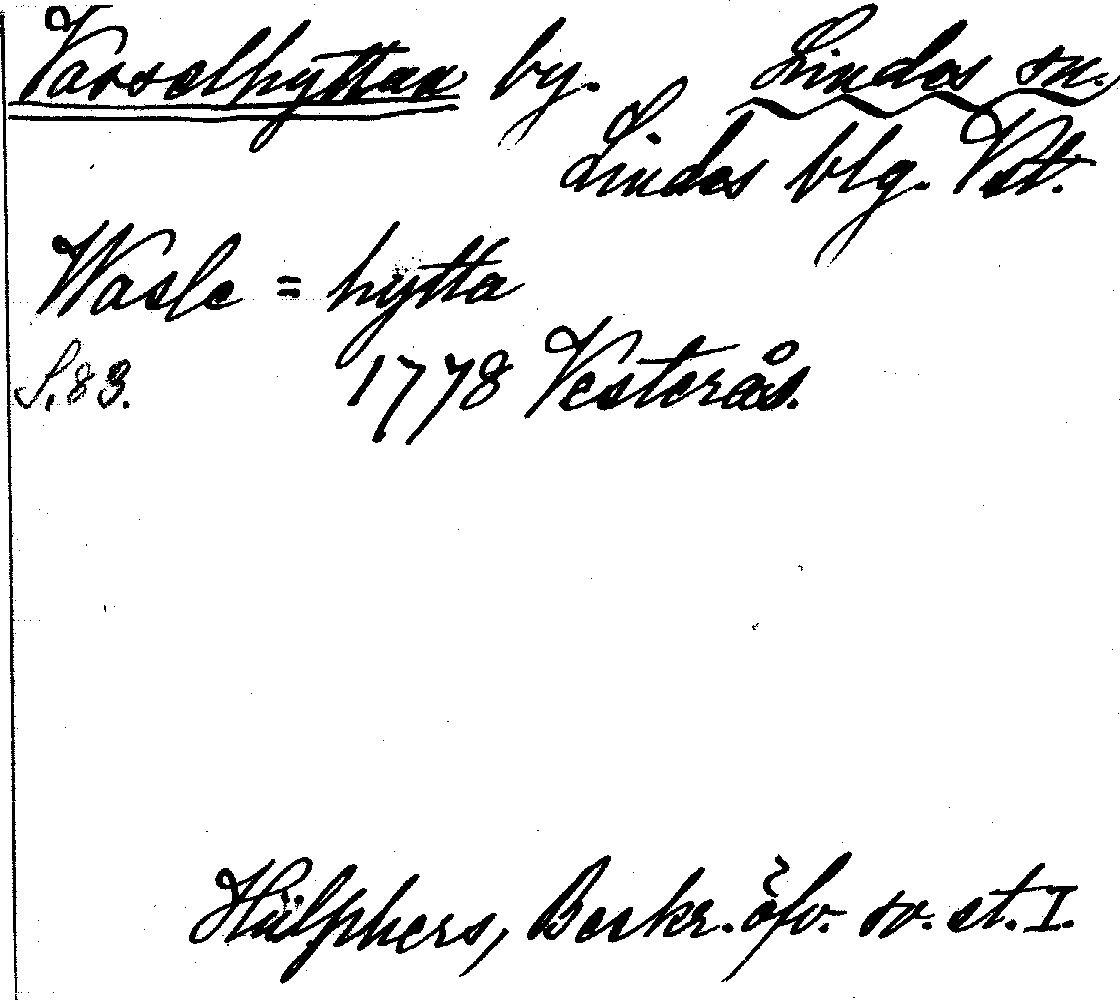 Varselhyttan by. Lindes sn.
Lindes blg. Vst.
Wasle = hytta
S. 83. 1778 Vesterås.
Hülphers, Beskr. öfv. sv. st. I.